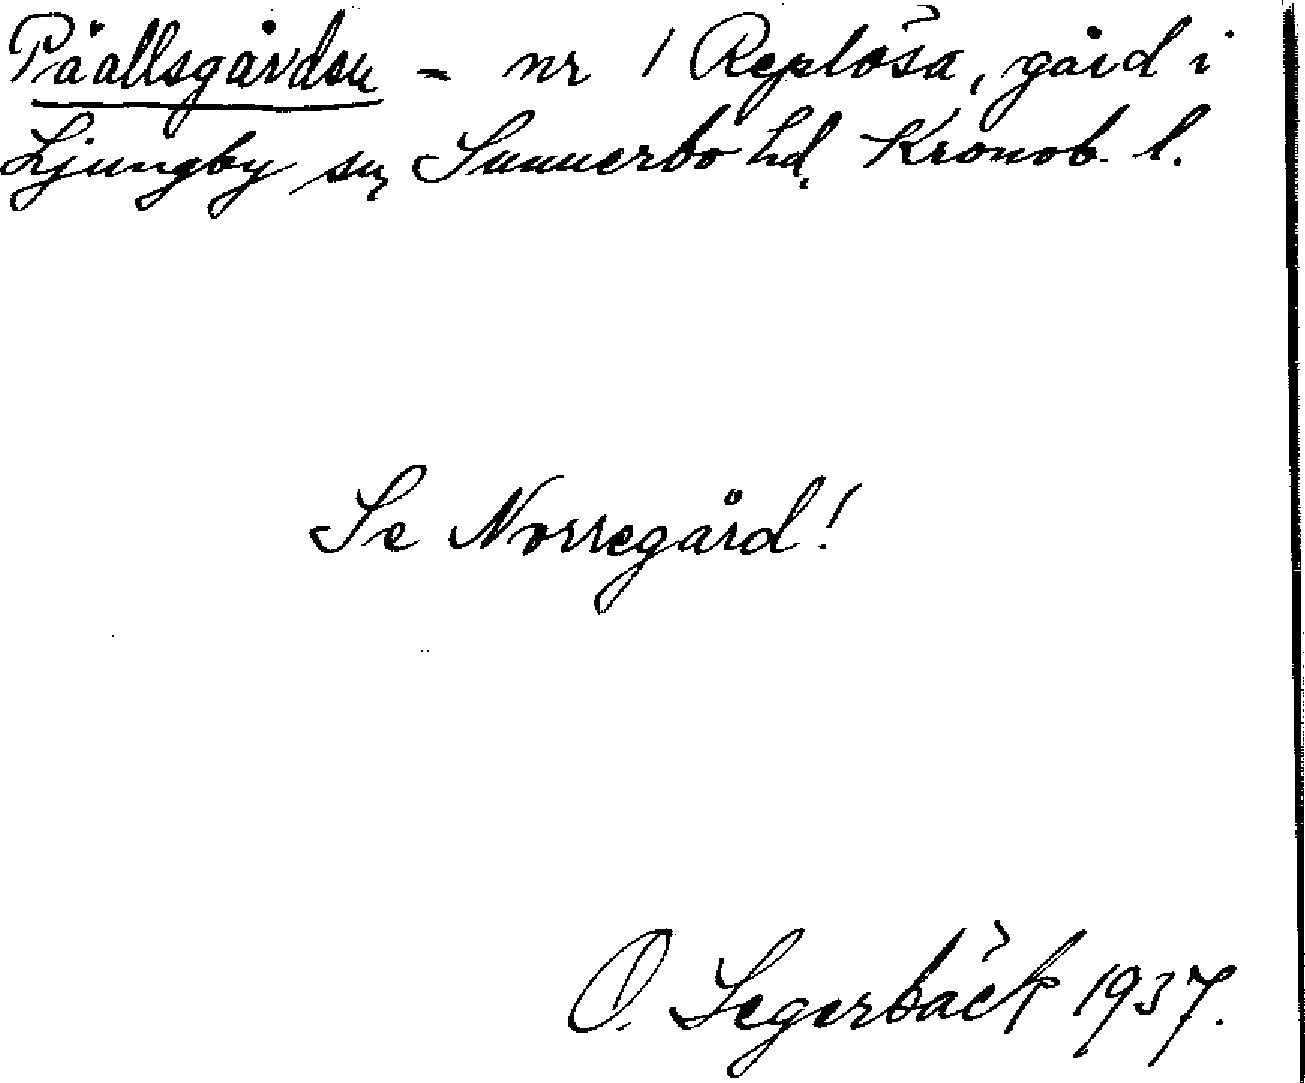 Påallsgården - nr 1 Replösa, gård i
Ljungby sn, Sunnerbo hd, Kronob. l.
Se Norregård!
O. Segerbäck 1937.